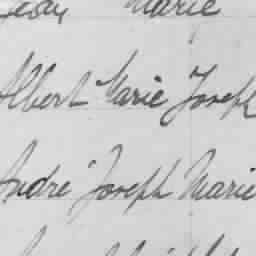 Jean Marie
Albert Marie Joseph
André Joseph Marie